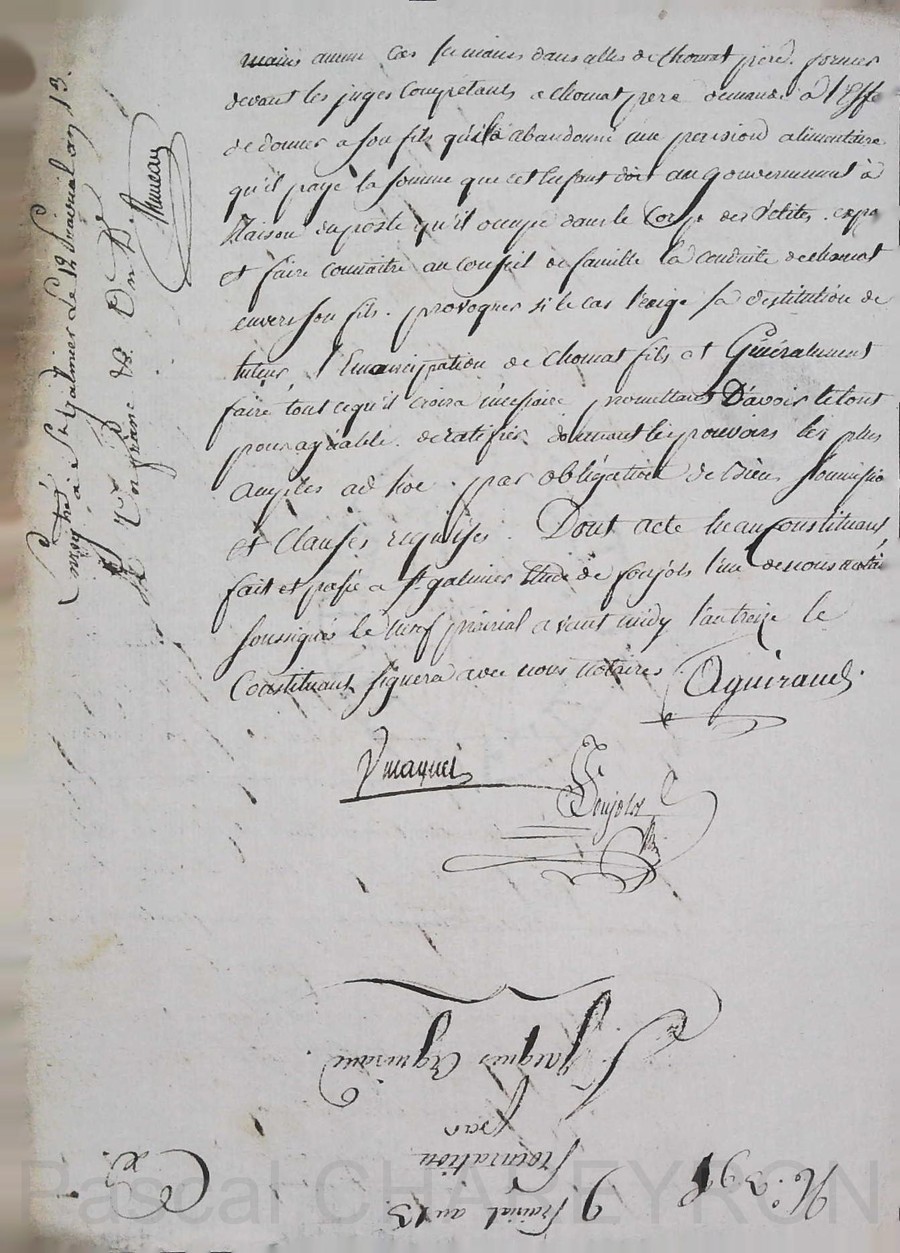 mains aucun des semaines dans celles de Chomat pere. former
devant les juges Compétants a chomat pere demande à l'Effe
de donner a son fils qu'il a abandonné une pension alimentaire
qu'il paye la somme que cet Enfant doit au gouvernement à
Raison du poste qu'il occupe dans le Corps des Vélites. expo
et faire connaitre au conseil de famille la conduite de chomat
envers son fils. provoquer si le cas l'exige sa destitution de
tuteur, l'Emancipation de chomat fils et Généralement
faire tout ce qu'il croira nécessaire promettant D'avoir le tout
pour agréable. de ratifier donnant les pouvoirs les plus
amples ad hoc. par obligation de biens soumissio
et Clauses requises. Dont acte beau Constituant
fait et passé a St galmier Etude de Soujols l'un de nous notai
soussignés le neuf prairial avant midy l'an treize le
Constituant signera avec nous notaires Aguiraud
Vmaquet
Soujols
Enregistré à St Galmier Le 12 Prairial an 13.
R Un franc
9 Prairial an 13
Procuration
par
Sr Jacques Aguiraud
No. 391
Ed.
Pascal CHABEYRON